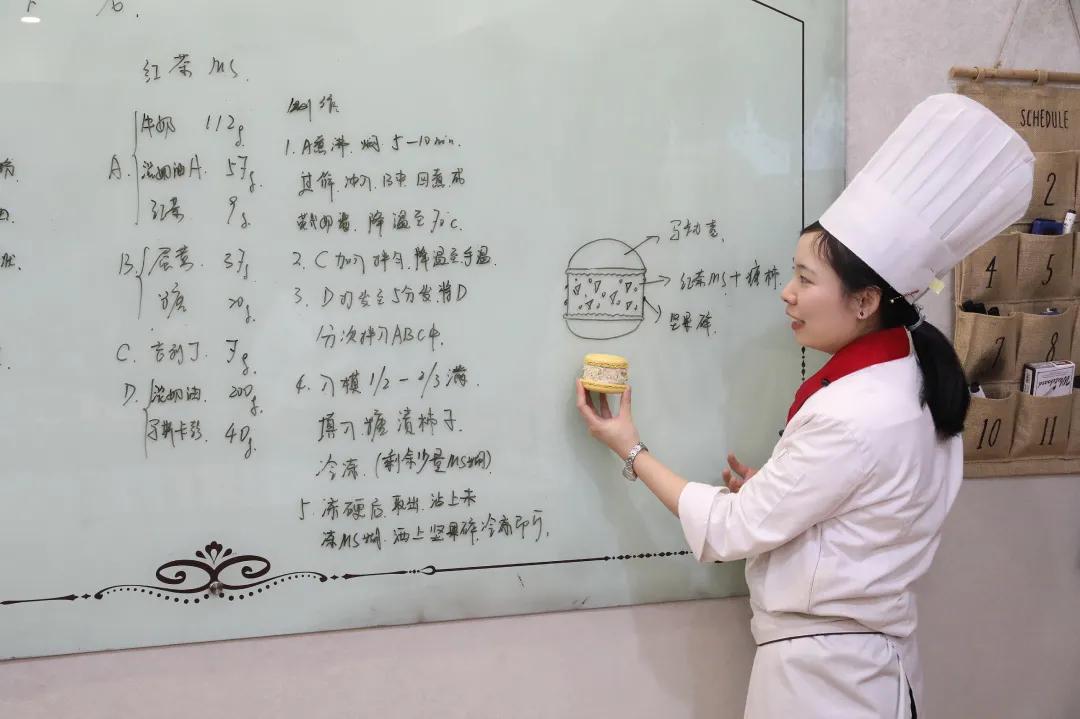 红茶 MS.
牛奶 112g
A. 淡奶油A. 57g.
红茶 9g
B. 蛋黄. 37g
糖 20g
C. 吉利丁. 7g
D. 淡奶油. 200g
马斯卡彭. 40g
制作
1. A煮沸. 焖 5-10min.
过筛. 冲入B中. 回煮成
英式奶酱. 降温至70℃.
2. C加入拌匀. 降温至手温
3. D打发至5分发. 将D
分次拌入ABC中.
4. 入模 1/2-2/3满.
填入糖渍柿子.
冷冻. (剩余少量MS糊)
5. 冻硬后. 取出. 沾上未
冻MS糊. 洒上坚果碎. 冷冻即可.
马卡龙
红茶MS+糖柿.
坚果碎.
SCHEDULE
2
4 5
7 8
10 11